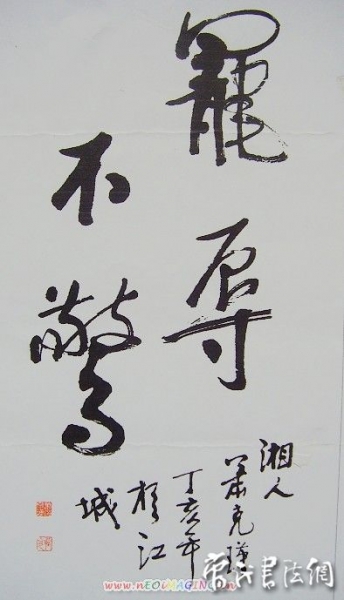 寵辱
不驚
湘人
蕭克
丁亥年
於江
城
www.nEOiMAGiNG.cn
當代書法網